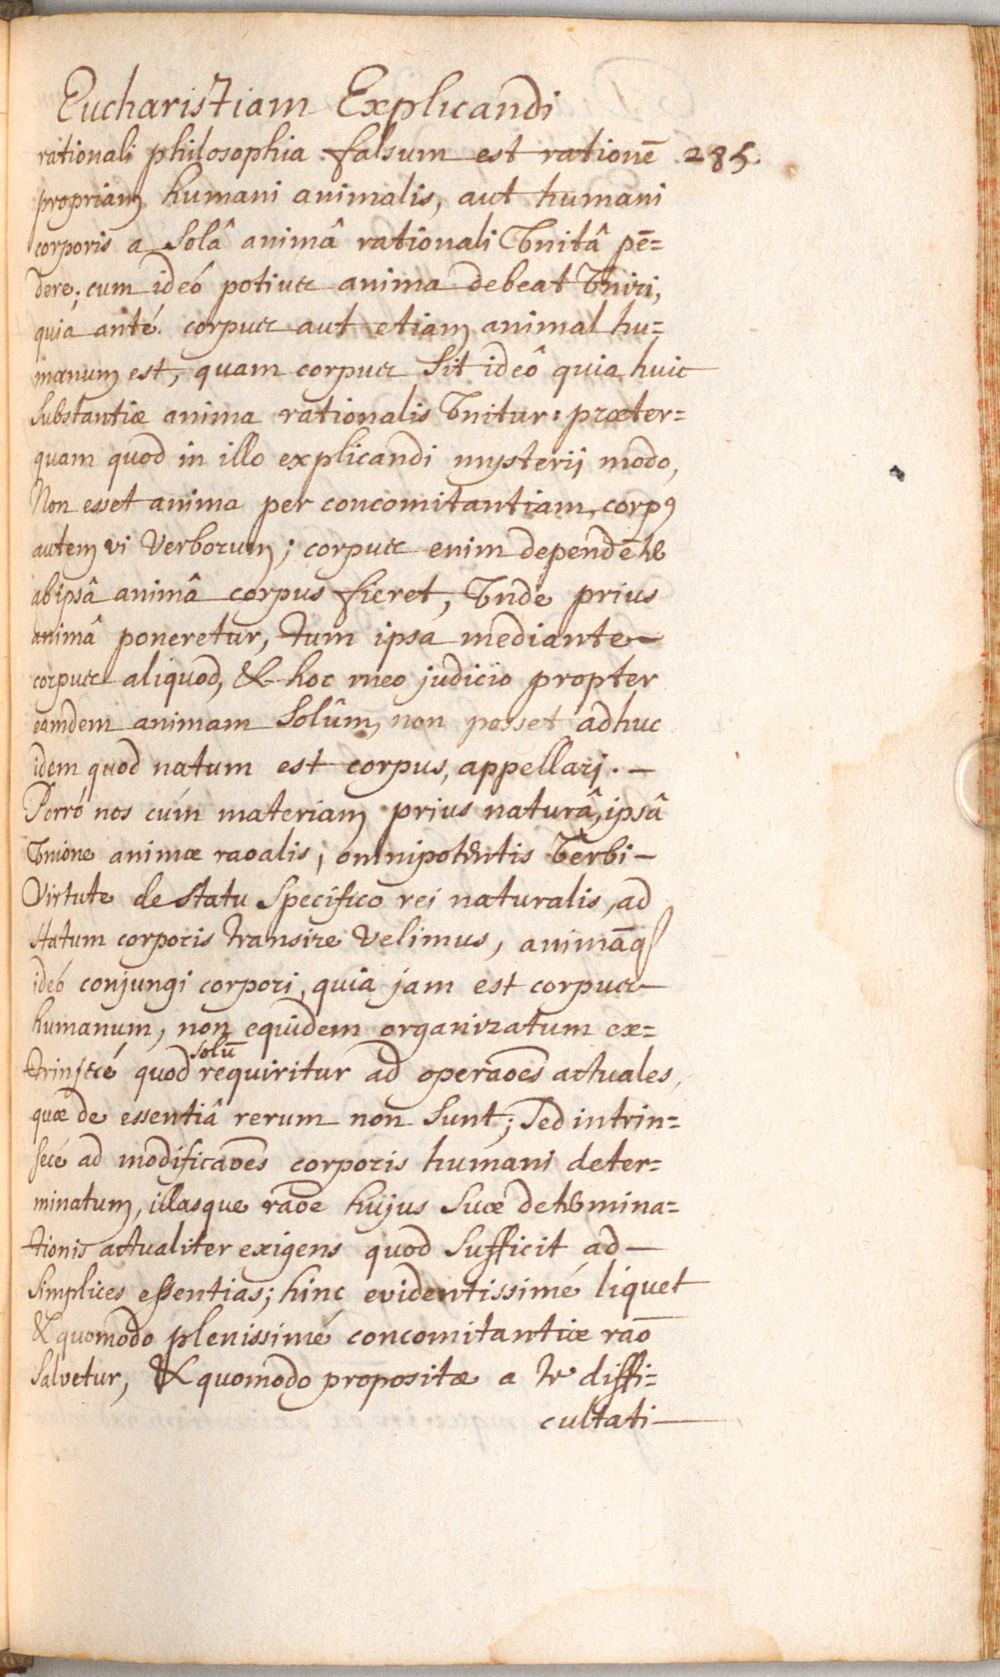 Eucharistiam Explicandi
rationali philosophia falsum est rationē 285.
propriam humani animalis, aut humani
corporis a solâ animâ rationali Vnitâ pē=
dere; cum ideó potius anima debeat Vniri,
quia anté corpus aut etiam animal hu=
manum est, quam corpus sit ideô quia huic
substantiæ anima rationalis Vnitur: præter=
quam quod in illo explicandi mysterij modo,
Non esset anima per concomitantiam, corpꝰ
autem vi Verborum; corpus enim dependēter
ab ipsâ animâ corpus fieret, Vnde prius
animâ poneretur, tum ipsa mediante
corpus aliquod, & hoc meo judicio propter
eamdem animam solûm, non posset adhuc
idem quod natum est corpus, appellarj. —
Porró nos cúm materiam prius naturâ, ipsâ
Vnione animæ raoalis, omnipotentis Verbi —
Virtute de statu specifico rei naturalis, ad
statum corporis transire Velimus, animāq
ideó conjungi corpori, quia jam est corpus
humanum, non equidem organizatum ex=
solū
trinsecé quod requiritur ad operaōes actuales,
quæ de essentiâ rerum non sunt; Sed intrin=
secé ad modificaōes corporis humani deter=
minatum, illasque raōe hujus suæ determina=
tionis actualiter exigens quod sufficit ad —
simplices essentias; hinc evidentissimé liquet
& quomodo plenissimé concomitantiæ raō
salvetur, & quomodo propositæ a te diffi=
cultati —